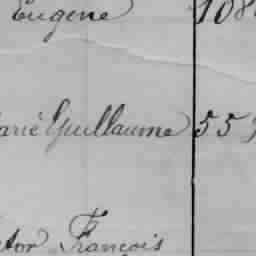 Eugene 108
arie Guillaume 55
ctor François